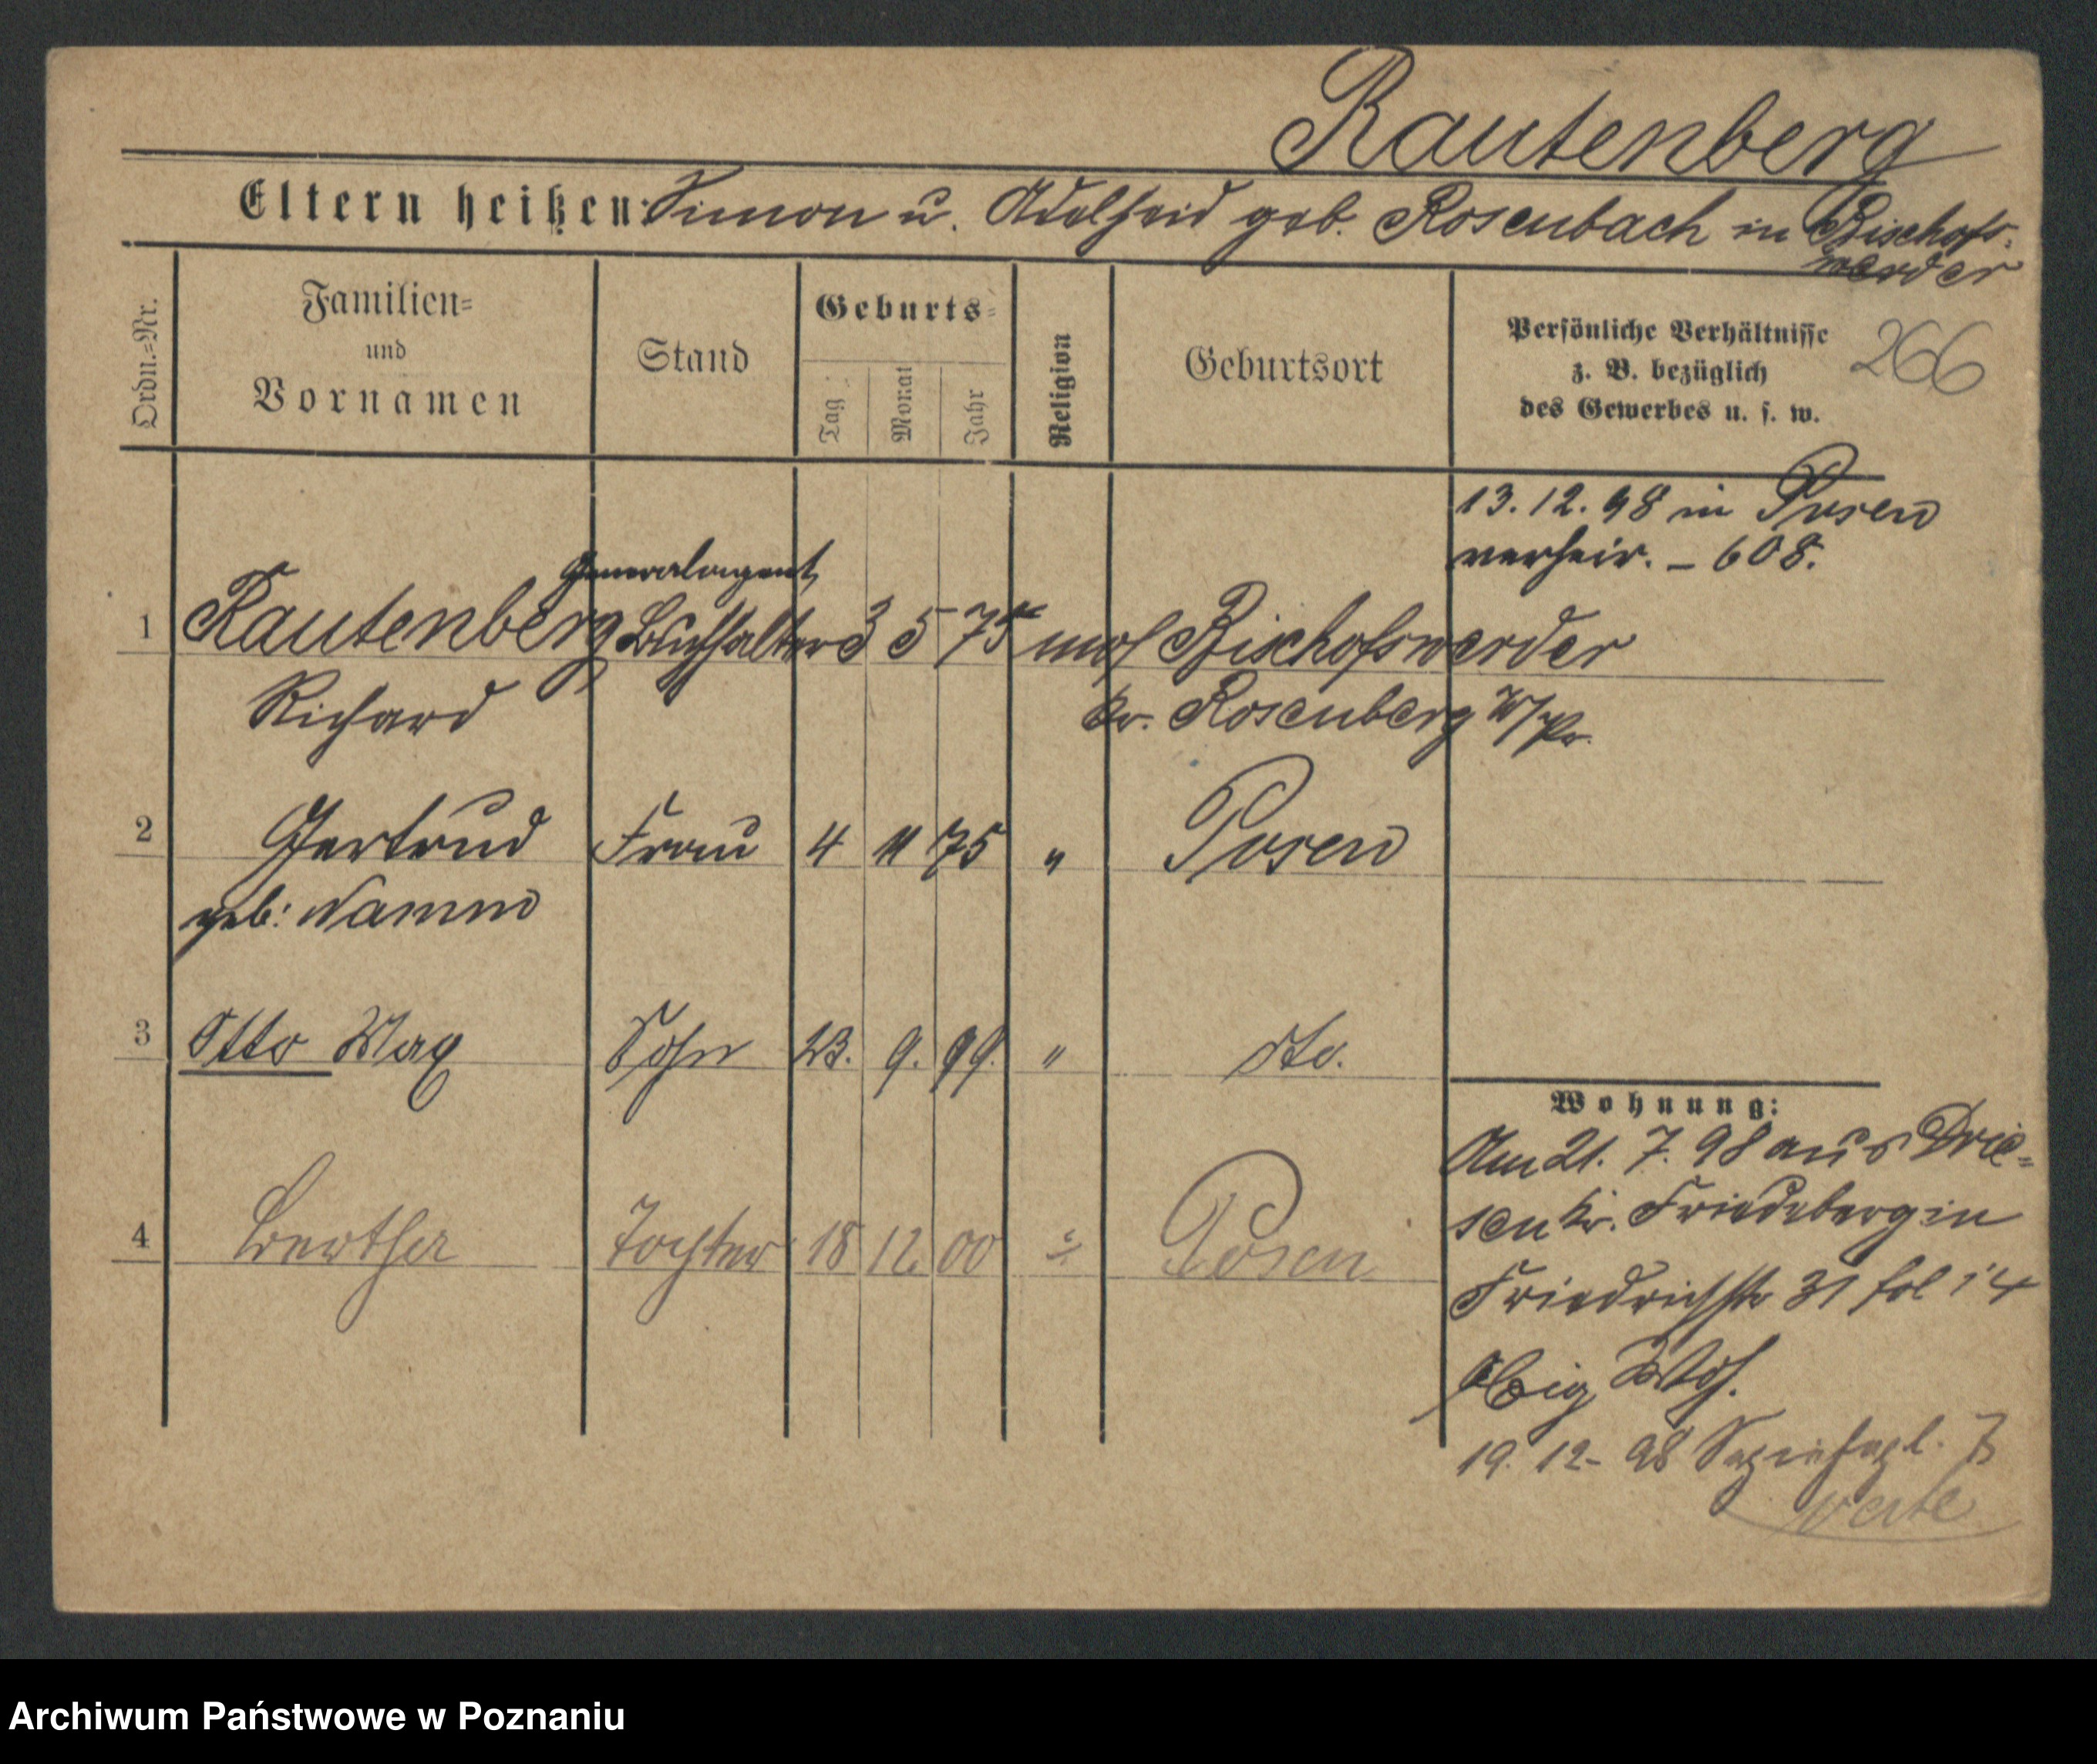 Rautenberg
Eltern heißen: Simon u. Adelheid geb. Rosenbach in Bischofs-
werder
Ordn.-Nr.
Familien-
und
Vornamen
Stand
Geburts-
Tag
Monat
Jahr
Religion
Geburtsort
Persönliche Verhältnisse
z. B. bezüglich
des Gewerbes u. s. w.
266
13. 12. 98 in Posen
verheir. – 608.
Generalagent
1 Rautenberg Buchhalter 3 5 75 mos Bischofswerder
Richard Kr. Rosenberg W/Pr.
2 Gertrud Frau 4 11 75 " Posen
geb:
3 Otto Max Sohn 23. 9. 99. " dto.
Wohnung:
Am 21. 7. 98 aus Drie-
sen Kr. Friedeberg in
4 Bertha Tochter 18 12 00 " Posen
Friedrichstr 31 fol 14
Obig Whg.
19. 12. 98 Sapiehapl. 7
verte
Archiwum Państwowe w Poznaniu